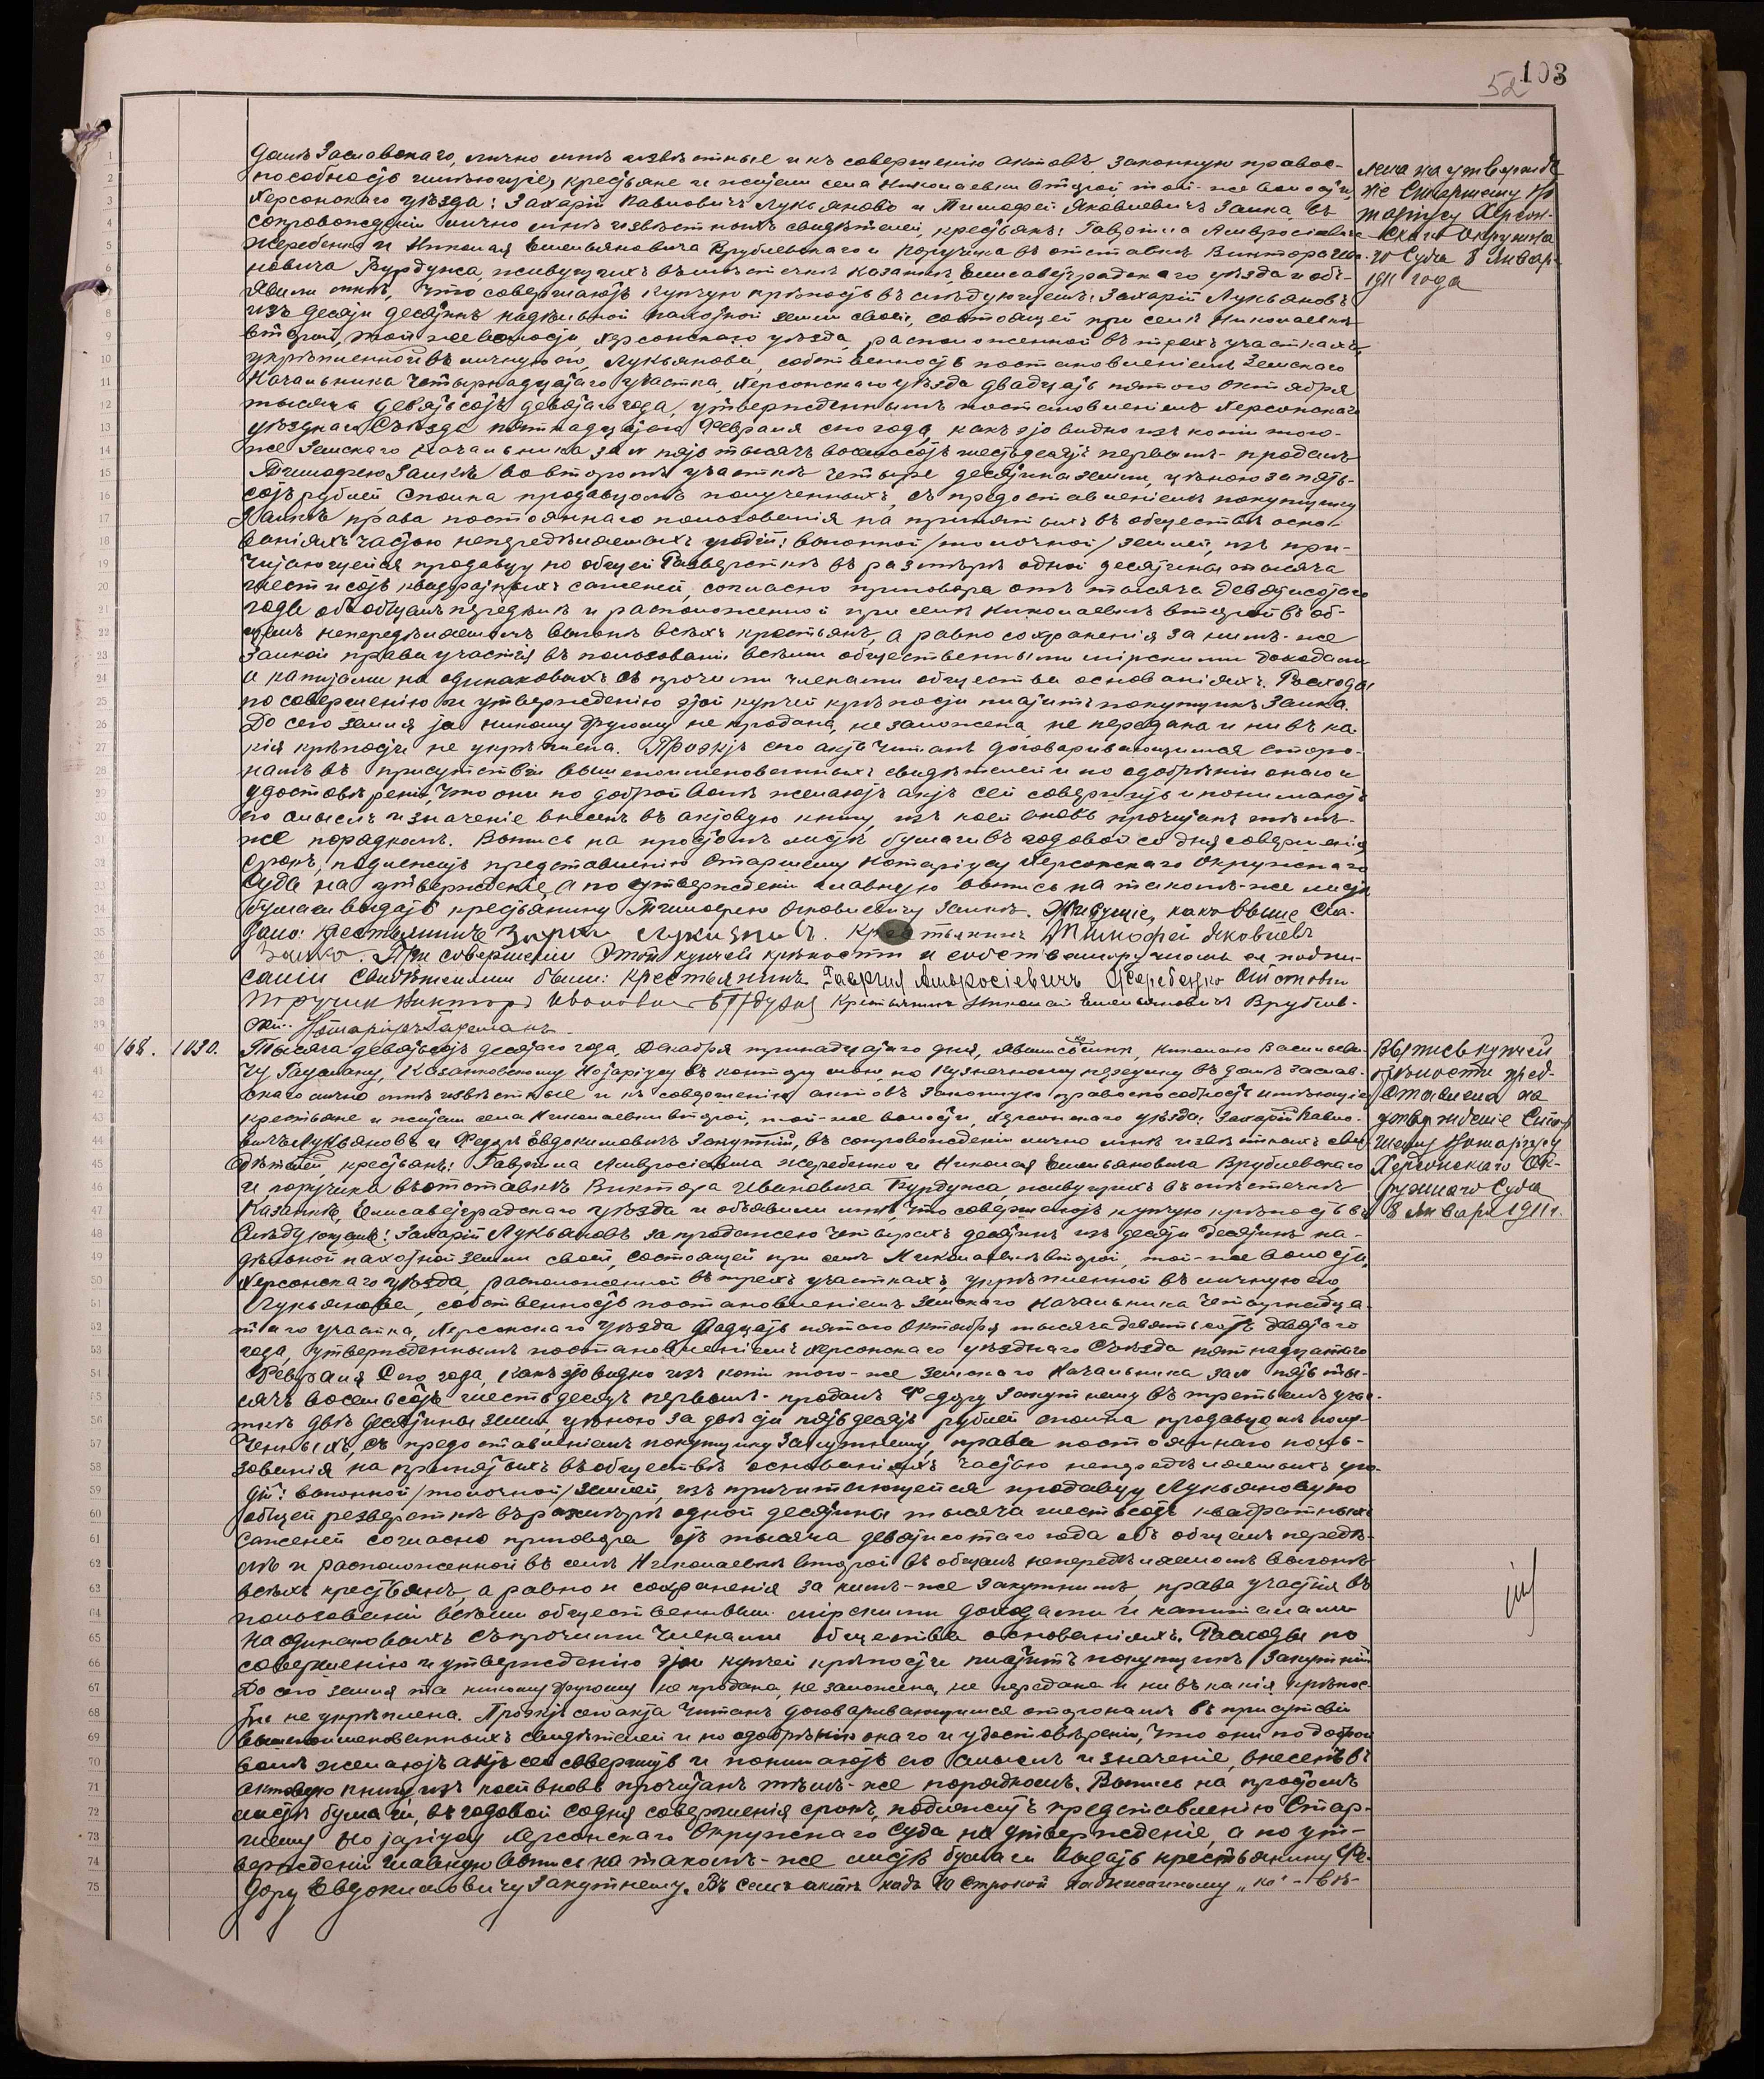 103
52
домѣ Заславскаго, лично мнѣ извѣстные и къ совершенію актовъ законную правос-
пособность имѣющіе, крестьяне и жители села Николаевки Второй той-же волости,
Херсонскаго уѣзда: Захарій Павловичъ Лукьяновъ и Тимофей Яковлевичъ Заика, въ
сопровожденіи лично мнѣ извѣстныхъ свидѣтелей, крестьянъ: Гавріила Амвросіевича
Жеребецко и Николая Емельяновича Врублевскаго и поручика въ отставкѣ Виктора Ива-
новича Бурдуса, живущихъ въ мѣстечкѣ Казанкѣ, Елисаветградскаго уѣзда и объ-
явили мнѣ, что совершаютъ купчую крѣпость въ слѣдующемъ: Захарій Лукьяновъ
изъ десяти десятинъ надѣльной пахотной земли своей, состоящей при селѣ Николаевкѣ
второй, той же волости, Херсонскаго уѣзда, расположенной въ трехъ участкахъ,
укрѣпленной въ личную его, Лукьянова, собственность постановленіемъ Земскаго
Начальника четырнадцатаго участка, Херсонскаго уѣзда двадцать пятого Октября
тысяча девятьсотъ девятаго года, утвержденнымъ постановленіемъ Херсонскаго
уѣзднаго Съѣзда пятнадцатаго Февраля сего года, какъ это видно изъ копіи того-
же Земскаго Начальника за № пять тысячъ восемьсотъ шестьдесятъ первымъ - продалъ
Тимофею Заикѣ во второмъ участкѣ четыре десятины земли, цѣною за пять-
сотъ рублей сполна продавцомъ полученныхъ, съ предоставленіемъ покупщику
Заикѣ права постояннаго пользованія на принятыхъ въ обществѣ осно-
ваніяхъ частью непередѣляемыхъ угодій: выгонной /толочной/ землей, изъ при-
читающейся продавцу по общей разверсткѣ въ размѣрѣ одной десятины тысяча
шестисотъ квадратныхъ саженей, согласно приговора отъ тысяча девятисотаго
года объ общемъ передѣлѣ и расположенной при селѣ Николаевкѣ второй въ об-
щемъ непередѣляемомъ выгонѣ всѣхъ крестьянъ, а равно сохраненія за нимъ-же
Заикой права участія въ пользованіи всѣми общественными мірскими доходами
и капиталами на одинаковыхъ съ прочими членами общества основаніяхъ. Расходы
по совершенію и утвержденію этой купчей крѣпости платитъ покупщикъ Заика.
До сего земля та никому другому не продана, не заложена, не передана и ни въ ка-
кія крѣпости не укрѣплена. Проэктъ сего акта читанъ договаривающимся сторо-
намъ въ присутствіи вышепоименованныхъ свидѣтелей и по одобреніи онаго и
удостовѣреніи, что они по доброй волѣ желаютъ актъ сей совершить и понимаютъ
его смыслъ и значеніе внесенъ въ актовую книгу, изъ коей вновь прочитанъ тѣмъ-
же порядкомъ. Выпись на простомъ листѣ бумаги въ годовой со дня совершенія
срокъ, подлежитъ представленію Старшему Нотаріусу Херсонскаго Окружнаго
Суда на утвержденіе, а по утвержденіи главную выпись на такомъ-же листѣ
бумаги выдать крестьянину Тимофею Яковлевичу Заикѣ. Живущіе, какъ выше ска-
зано: крестьянинъ Захарій Лукьяновъ. Крестьянинъ Тимофей Яковлевъ
Заика. При совершеніи этой купчей крѣпости и собственноручномъ ея подпи-
саніи свидѣтелями были: Крестьянинъ Гаврііл Амвросіевичъ Жеребецко Отставн
Поручик Виктор Ивановичъ Бурдусъ Крестьянинъ Николай Емельяновичъ Врублев-
скій. Нотаріусъ Гаусманъ.
168. 1030. Тысяча девятьсотъ десятаго года, Декабря тринадцатаго дня, явились ко мнѣ, Николаю Васильеви-
чу Гаусману, Казанковскому Нотаріусу въ контору мою, по Кузнечному переулку въ домѣ Заслав-
скаго лично мнѣ извѣстные и къ совершенію актовъ законную правоспособность имѣющіе
крестьяне и жители села Николаевки второй, той-же волости, Херсонскаго уѣзда: Захарій Павло-
вичъ Лукьяновъ и Федоръ Евдокимовичъ Закутній, въ сопровожденіи лично мнѣ извѣстныхъ сви-
дѣтелей, крестьянъ: Гавріила Амвросіевича Жеребецко и Николая Емельяновича Врублевскаго
и поручика въ отставкѣ Виктора Ивановича Бурдуса, живущихъ въ мѣстечкѣ
Казанкѣ, Елисаветградскаго уѣзда и объявили мнѣ, что совершаютъ купчую крѣпость въ
слѣдующемъ: Захарій Лукьяновъ за продажею четырехъ десятинъ изъ десяти десятинъ на-
дѣльной пахотной земли своей, состоящей при селѣ Николаевкѣ второй, той-же волости,
Херсонскаго уѣзда, расположенной въ трехъ участкахъ, укрѣпленной въ личную его,
Лукьянова, собственность постановленіемъ Земскаго Начальника четырнадца-
таго участка, Херсонскаго уѣзда двадцать пятаго Октября тысяча девятьсотъ девятаго
года, утвержденнымъ постановленіемъ Херсонскаго уѣзднаго Съѣзда пятнадцатаго
Февраля сего года, какъ это видно изъ копіи того-же Земскаго Начальника за № пять ты-
сячъ восемьсотъ шестьдесятъ первымъ - продалъ Федору Закутнему въ третьемъ учас-
ткѣ двѣ десятины земли, цѣною за двѣсти пятьдесятъ рублей сполна продавцомъ полу-
ченныхъ, съ предоставленіемъ покупщику Закутнему, права постояннаго поль-
зованія на принятыхъ въ обществѣ основаніяхъ частью непередѣляемыхъ уго-
дій: выгонной /толочной/ землей, изъ причитающейся продавцу Лукьянову по
общей разверсткѣ въ размѣрѣ одной десятины тысяча шестьсотъ квадратныхъ
саженей согласно приговора отъ тысяча девятисотаго года объ общемъ передѣ-
лѣ и расположенной въ селѣ Николаевкѣ второй въ общемъ непередѣляемомъ выгонѣ
всѣхъ крестьянъ, а равно и сохраненія за нимъ-же Закутнимъ, права участія въ
пользованіи всѣми общественными мірскими доходами и капиталами
на одинаковыхъ съ прочими членами общества основаніяхъ. Расходы по
совершенію и утвержденію этой купчей крѣпости платитъ покупщикъ Закутній
До сего земля та никому другому не продана, не заложена, не передана и ни въ какія крѣпос-
ти не укрѣплена. Проэктъ сего акта читанъ договаривающимся сторонамъ въ присутствіи
вышепоименованныхъ свидѣтелей и по одобреніи онаго и удостовѣреніи, что они по доброй
волѣ желаютъ актъ сей совершить и понимаютъ его смыслъ и значеніе, внесенъ въ
актовую книгу изъ коей вновь прочитанъ тѣмъ-же порядкомъ. Выпись на простомъ
листѣ бумаги, въ годовой со дня совершенія срокъ, подлежитъ представленію Стар-
шему Нотаріусу Херсонскаго Окружнаго Суда на утвержденіе, а по ут-
вержденіи главную выпись на такомъ-же листѣ бумаги выдать крестьянину Фе-
дору Евдокимовичу Закутнему. Въ семъ актѣ надъ 40 строкой надписанному „ко" - вѣ-
лена на утвержде
ніе Старшему Но
таріусу Херсон-
скаго Окружна
го Суда 8 Январ
1911 года
Выпись купчей
крѣпости пред-
ставлена на
утвержденіе Стар
шему Нотаріусу
Херсонскаго Ок-
ружнаго Суда
8 Января 1911 г.